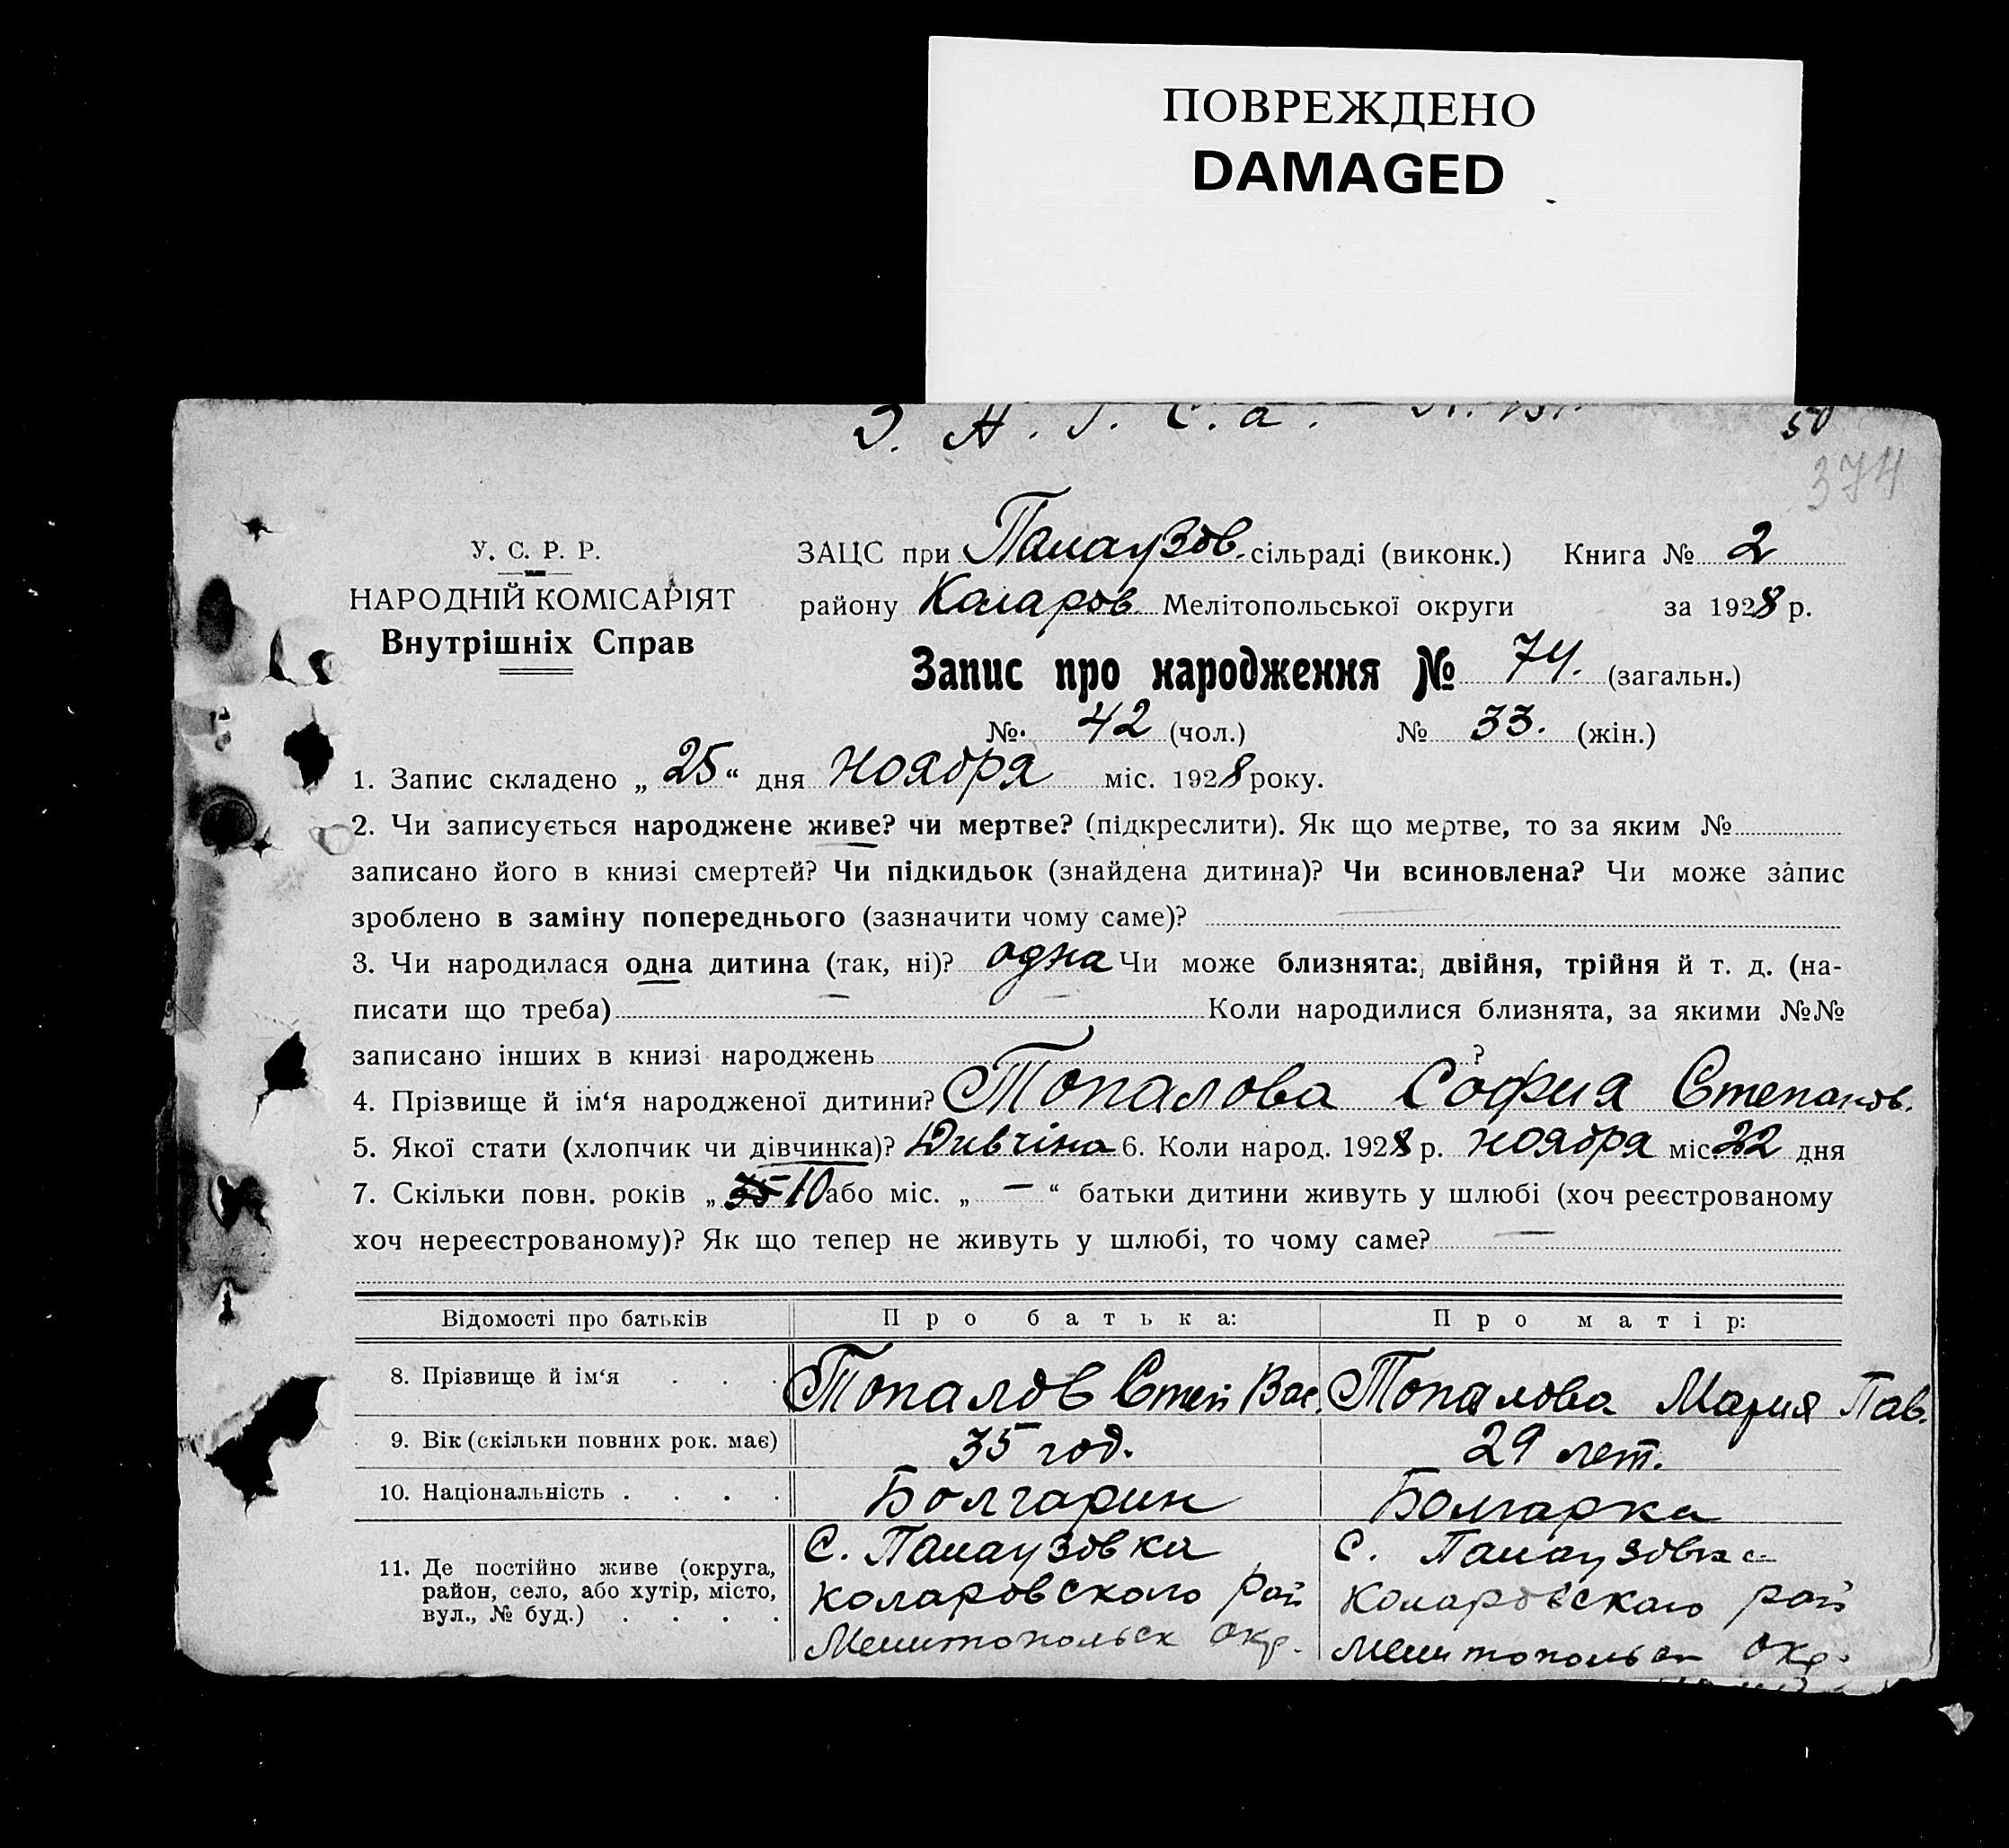 ПОВРЕЖДЕНО
DAMAGED
З. А. Г. С. а.
50
374
У. С. Р. Р.
НАРОДНІЙ КОМІСАРІЯТ
Внутрішніх Справ
ЗАЦС при Панаузов. сільраді (виконк.) Книга № 2
району Коларов. Мелітопольської округи за 1928 р.
Запис про народження № 74. (загальн.)
№ 42 (чол.) № 33. (жін.)
1. Запис складено „ 25 “ дня ноября міс. 1928 року.
2. Чи записується народжене живе? чи мертве? (підкреслити). Як що мертве, то за яким №
записано його в книзі смертей? Чи підкидьок (знайдена дитина)? Чи всиновлена? Чи може запис
зроблено в заміну попереднього (зазначити чому саме)? —
3. Чи народилася одна дитина (так, ні)? одна Чи може близнята: двійня, трійня й т. д. (на-
писати що треба) — Коли народилися близнята, за якими №№
записано інших в книзі народжень ?
4. Прізвище й ім‘я народженої дитини? Топалова София Степанов.
5. Якої стати (хлопчик чи дівчинка)? Дивчіна 6. Коли народ. 1928 р. ноября міс. 22 дня
7. Скільки повн. років „ 35 10 або міс. „ — “ батьки дитини живуть у шлюбі (хоч реєстрованому
хоч нереєстрованому)? Як що тепер не живуть у шлюбі, то чому саме? —
Відомості про батьків Про батька: Про матір:
8. Прізвище й ім‘я . . . Топалов Степ Вас. Топалова Мария Пав.
9. Вік (скільки повних рок. має) 35 год. 29 лет.
10. Національність . . . . Болгарин Болгарка
11. Де постійно живе (округа, район, село, або хутір, місто, вул., № буд.) . . . .
С. Панаузовка
Коларовского рай
Мелитопольск окр.
С. Панаузовка
Коларовского рай
Мелитопольск окр.